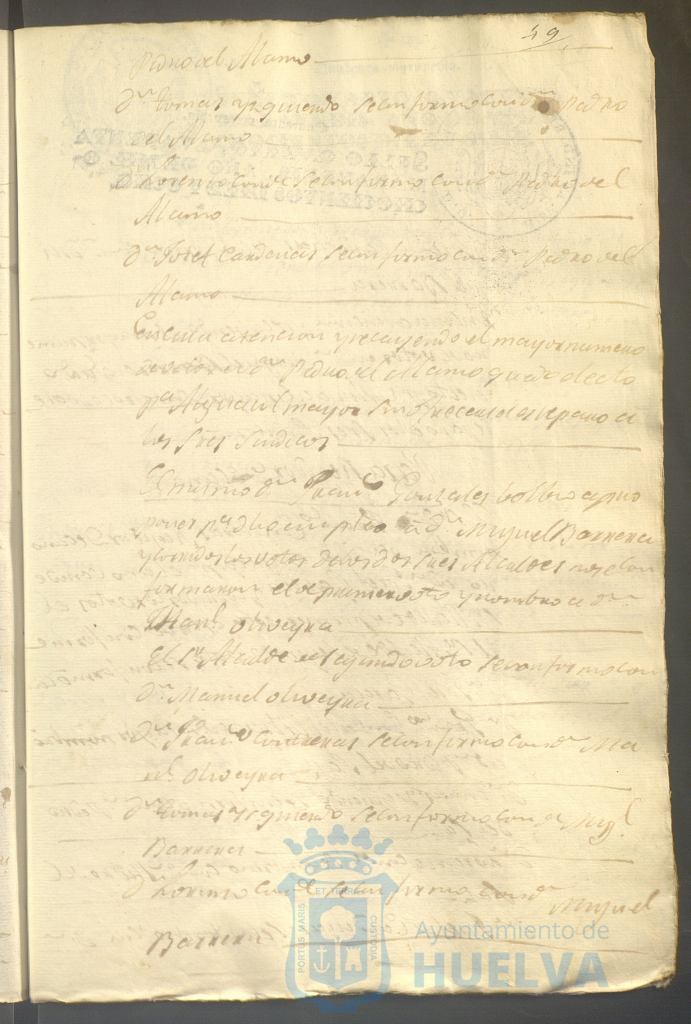 49.
Pedro del Alamo
Dn. tomas yzquierdo se conformo con dn. Pedro
del Alamo
Dn. Lorenzo conde se conformo con dn. Pedro del
Alamo
Dn. Josef Cardenas se conformo con dn. Pedro del
Alamo
atencion y recayendo el mayor numero
de votos en dn. Pedro del Alamo quedo electo
pa. Alguacil mayor
los Sres Sindicos
El mismo dn. Franco. Gonzales bolbio a pro
poner pa. dho empleo a dn. Miguel Barrera
y los votos de los dos Sres Alcaldes
firmaron el de primer voto y nombro a dn.
Manl. oliveyra
El Sr. Alcalde de segundo voto se conformo con
dn. Manuel oliveyra
Dn. Franco. Contreras se conformo con dn. Ma
nl. oliveyra
Dn. tomas yzquierdo se conformo con dn. Migl.
Barrera
Dn. Lorenzo conde se conformo con dn. Miguel
Barrera
PORTUS MARIS ET TERRAE CUSTODIA
Ayuntamiento de
HUELVA